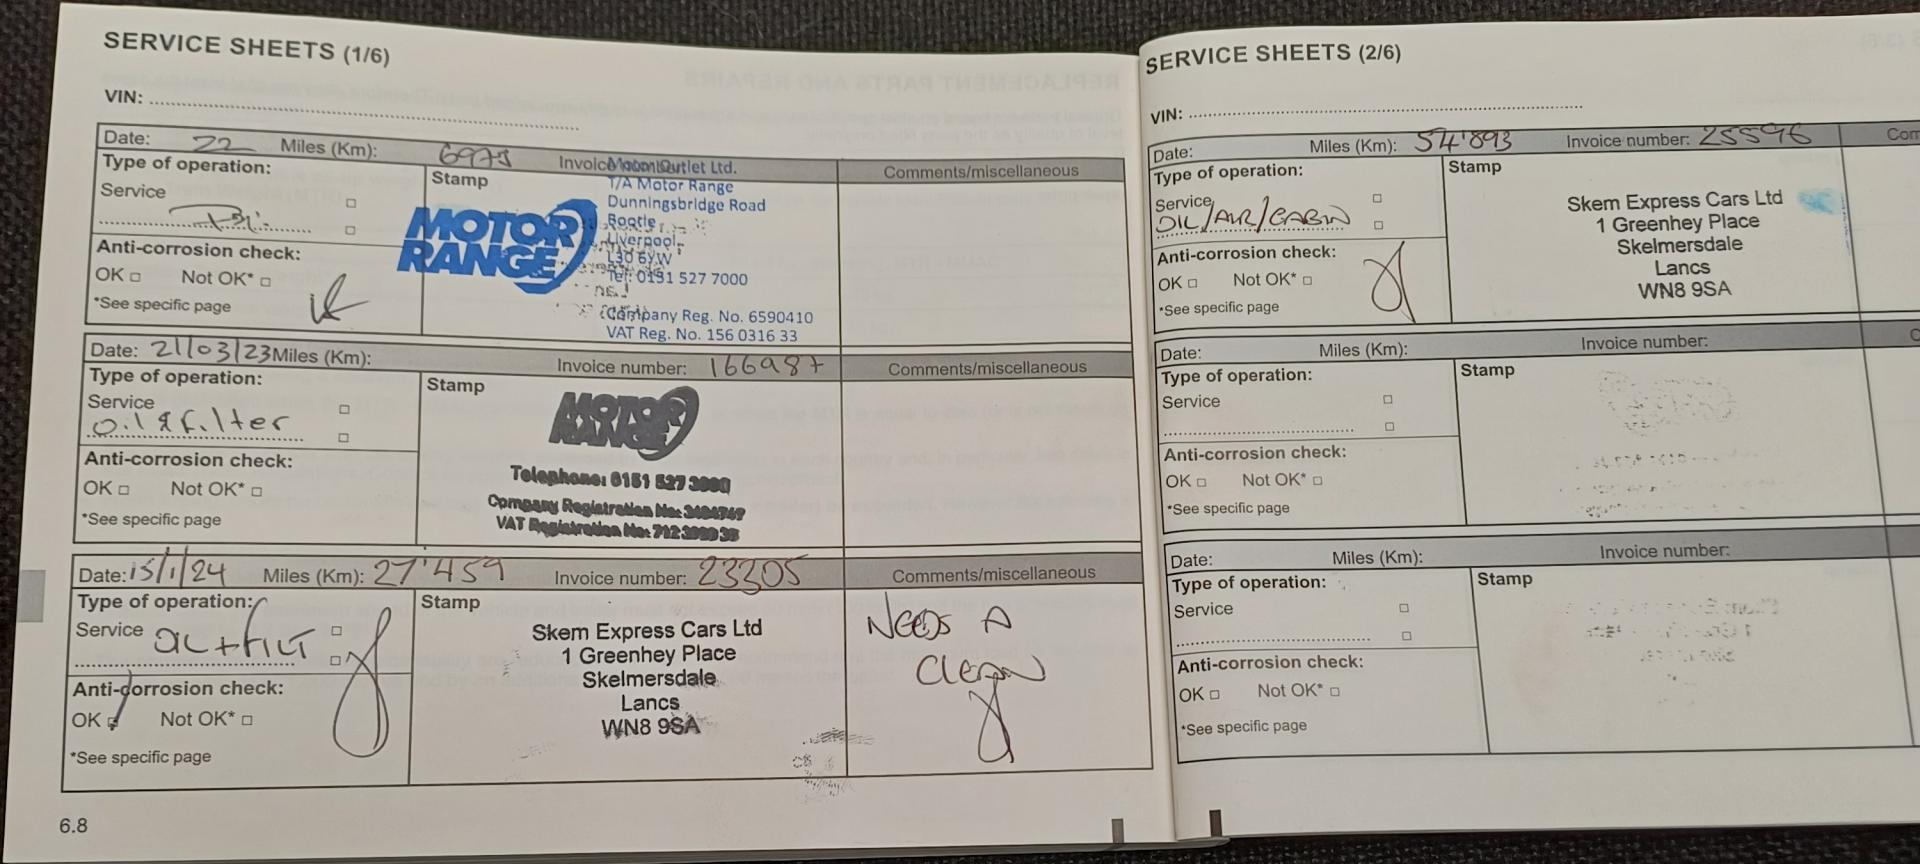 SERVICE SHEETS (1/6)
VIN:
Date: 22 Miles (Km): 6975 Invoice number:
Type of operation:
Service
Stamp
Comments/miscellaneous
MOTOR RANGE
Motor Outlet Ltd.
T/A Motor Range
Dunningsbridge Road
Bootle
Liverpool
L30 6YW
Tel: 0151 527 7000
Company Reg. No. 6590410
VAT Reg. No. 156 0316 33
Anti-corrosion check:
OK Not OK*
*See specific page
Date: 21/03/23 Miles (Km): Invoice number: 166987
Comments/miscellaneous
Type of operation:
Service
oil & filter
Stamp
MOTOR RANGE
Telephone: 0151 527
Company Registration No:
VAT Registration No: 712
Anti-corrosion check:
OK Not OK*
*See specific page
Date: 15/1/24 Miles (Km): 27'459 Invoice number: 23305
Comments/miscellaneous
Type of operation:
Service OIL + FILT
Stamp
Skem Express Cars Ltd
1 Greenhey Place
Skelmersdale
Lancs
WN8 9SA
NEEDS A
CLEAN
Anti-corrosion check:
OK Not OK*
*See specific page
6.8
SERVICE SHEETS (2/6)
VIN:
Date: Miles (Km): 54'893 Invoice number: 25596
Com
Type of operation:
Service
OIL/AIR/CABIN
Stamp
Skem Express Cars Ltd
1 Greenhey Place
Skelmersdale
Lancs
WN8 9SA
Anti-corrosion check:
OK Not OK*
*See specific page
Date: Miles (Km): Invoice number:
C
Type of operation:
Service
Stamp
Anti-corrosion check:
OK Not OK*
*See specific page
Date: Miles (Km): Invoice number:
Type of operation:
Service
Stamp
Anti-corrosion check:
OK Not OK*
*See specific page